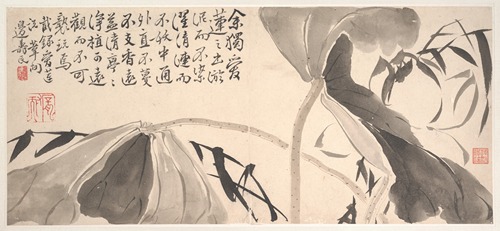 余獨愛
蓮之出淤
泥而不染
濯清漣而
不妖中通
外直不蔓
不支香遠
益清亭〻
淨植可遠
觀而不可
褻玩焉
試錄愛蓮
說葦間
邊壽民